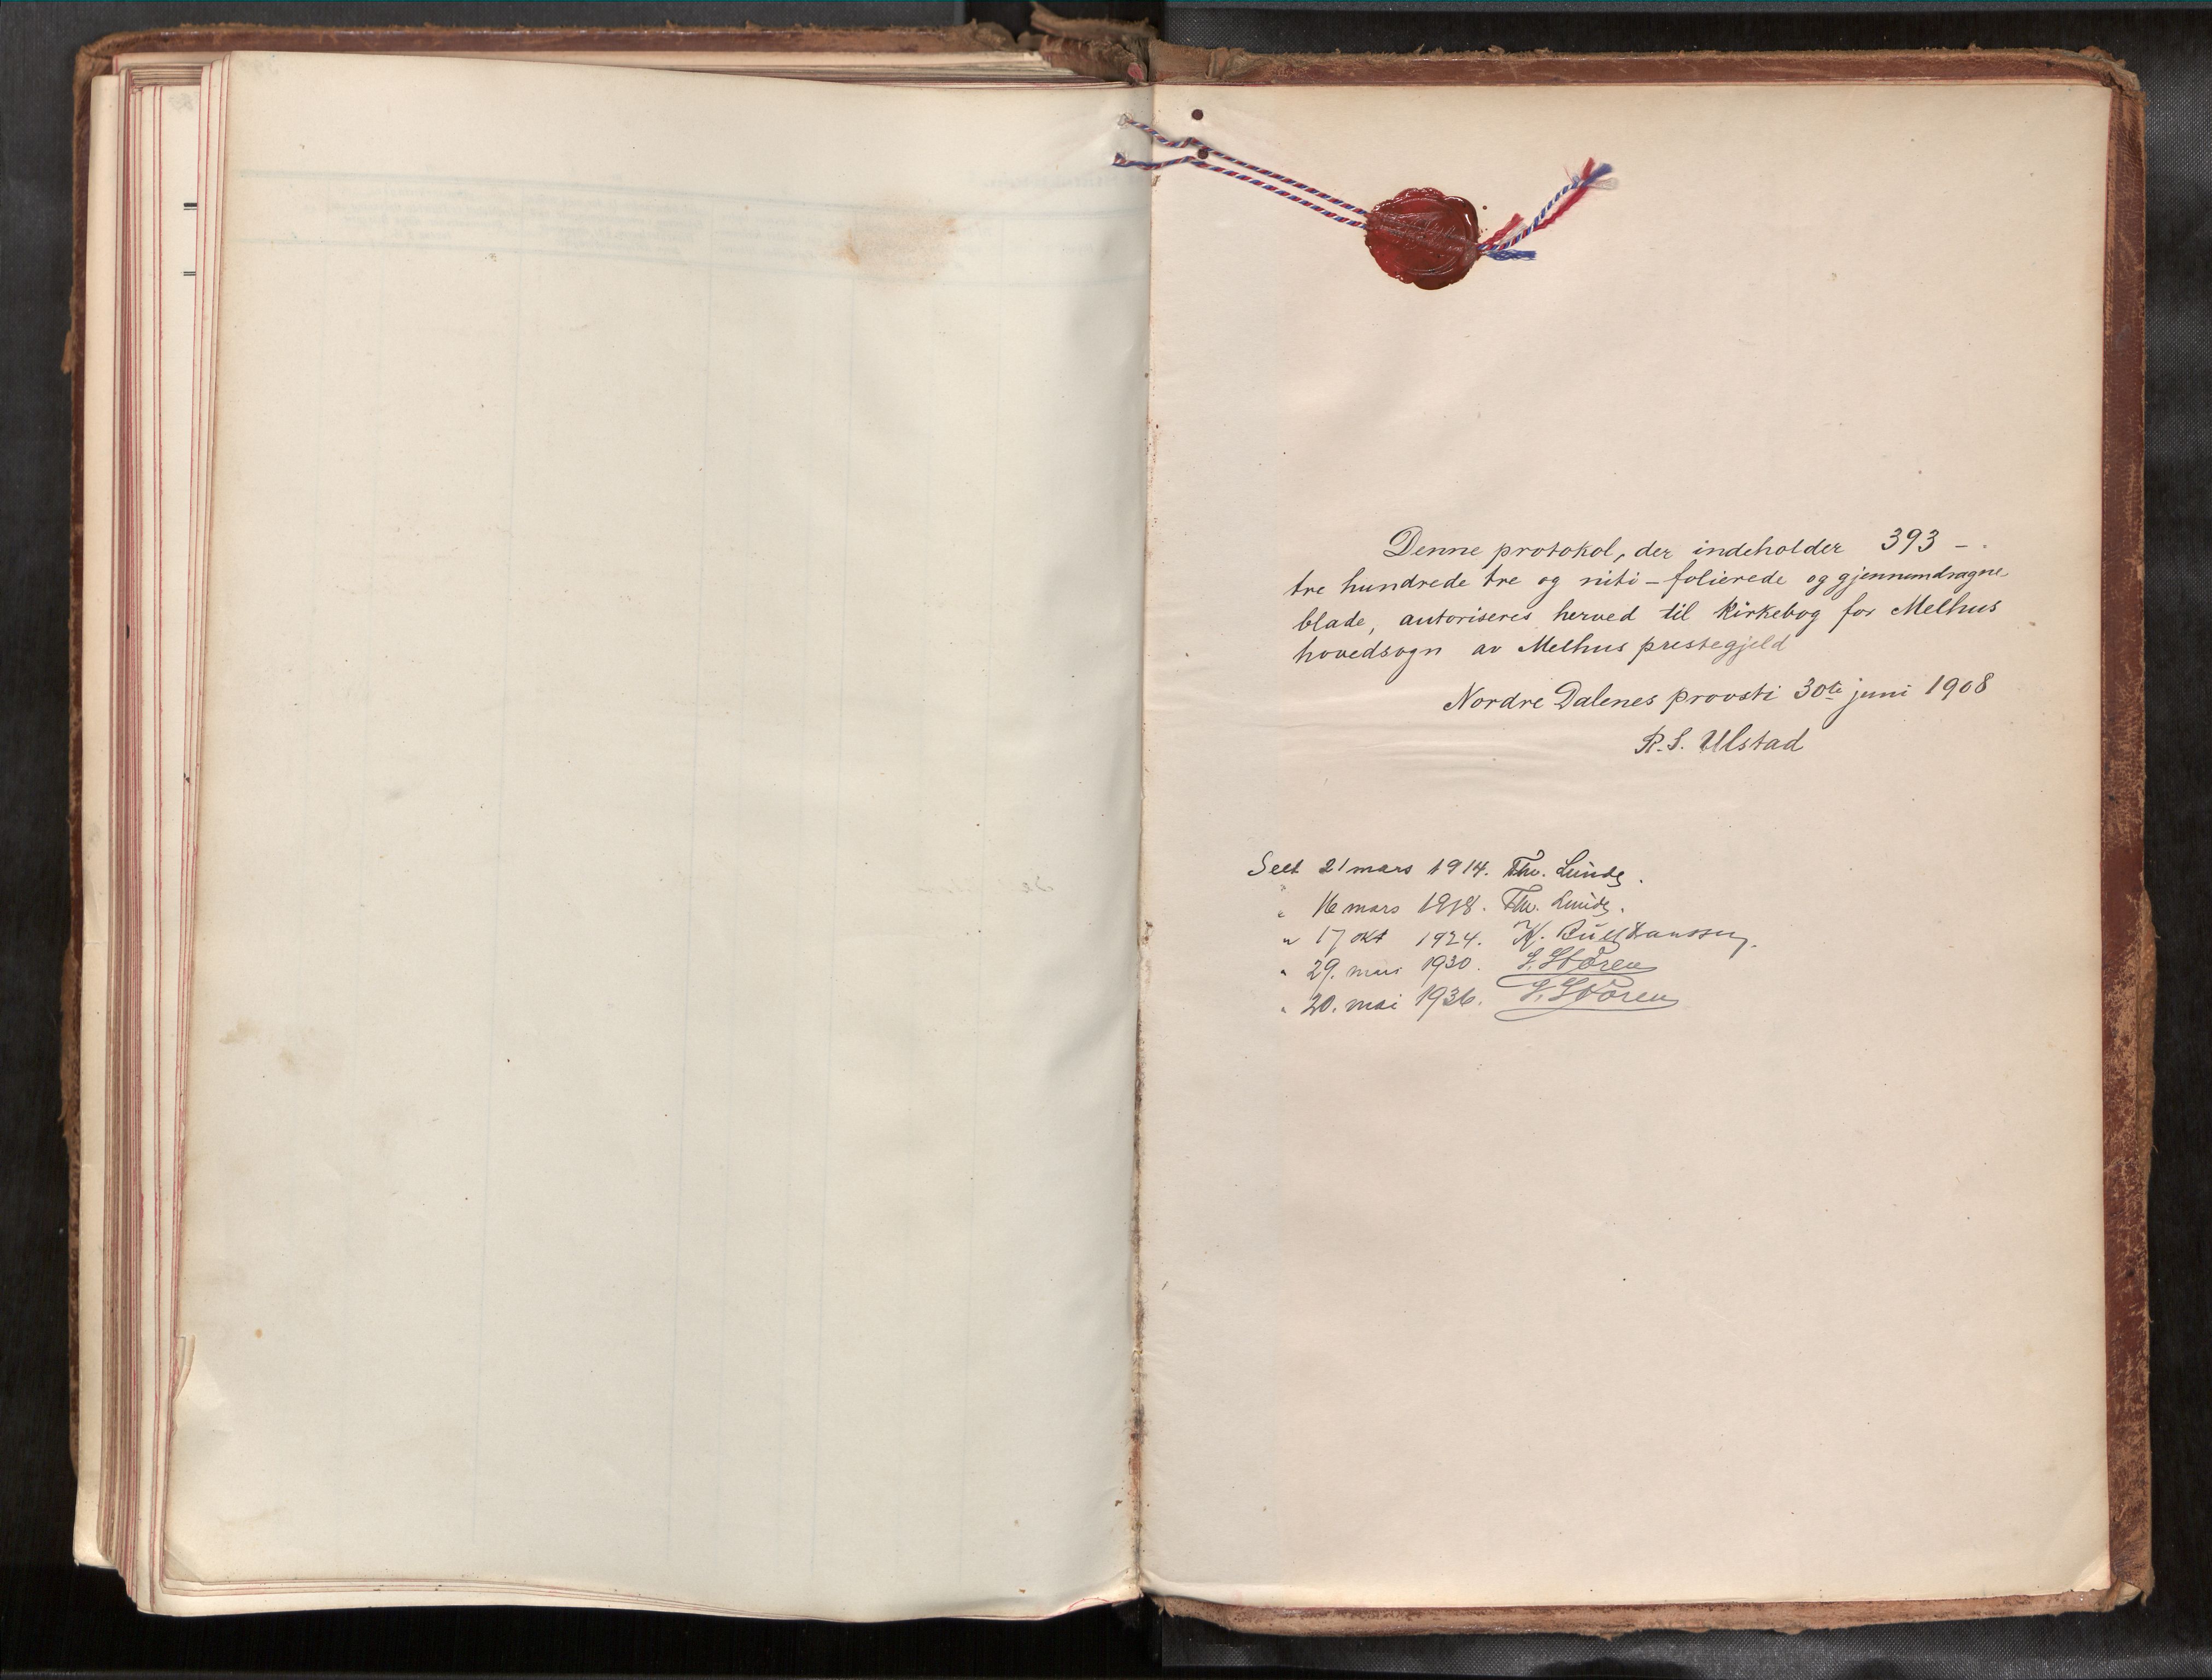 Denne protokol, der indeholder 393 –
tre hundrede tre og niti – folierede og gjennemdragne
blade, autoriseres herved til kirkebog for Melhus
hovedsogn av Melhus prestegjeld
Nordre Dalenes provsti 30te juni 1908
R. S. Ulstad
Seet 21 mars 1914. Thv. Lunde.
" 16 mars 1918. Thv. Lunde.
" 17 okt 1924. K. Bull Hanssen.
" 29. mai 1930. S. Støren
" 20. mai 1936. S. Støren